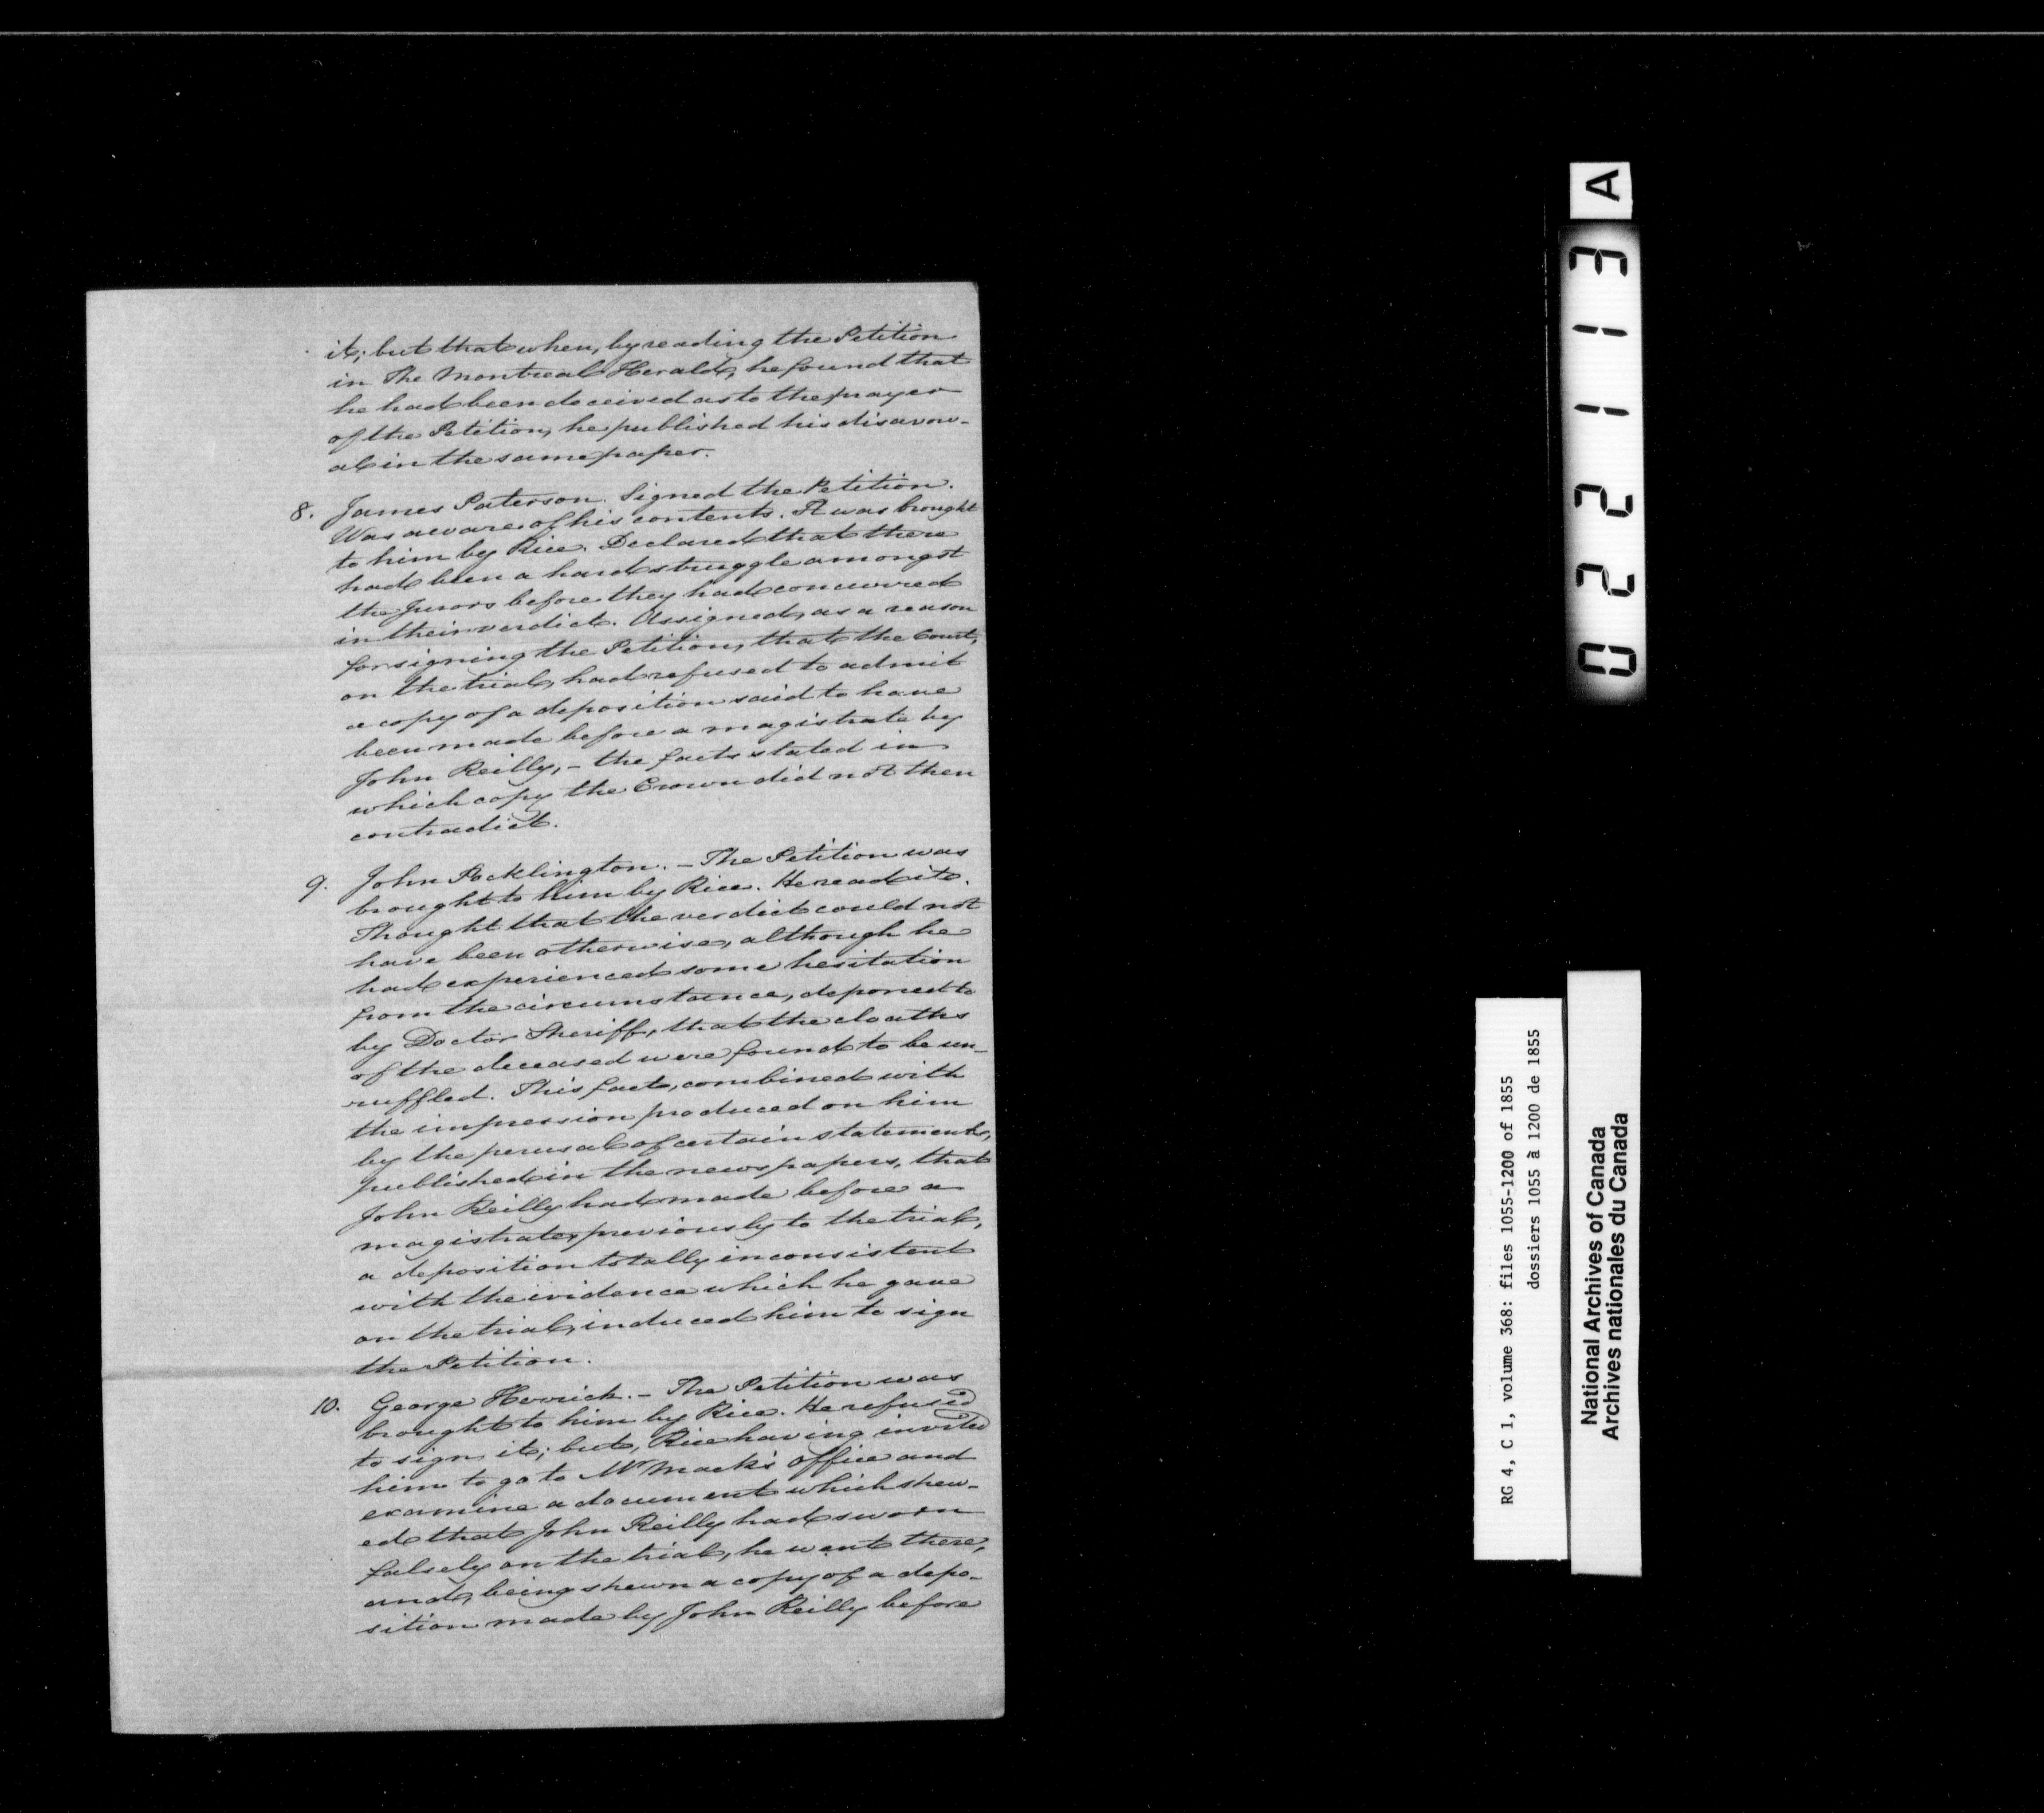 it; but that when, by reading the Petition
in The Montreal Herald, he found that
he had been deceived as to the prayer
of the Petition, he published his disavow-
al in the same paper.
8. James Paterson. Signed the Petition.
Was aware of his contents. It was brought
to him by Rice. Declared that there
had been a hard struggle amongst
the Jurors before they had concurred
in their verdict. Assigned, as a reason
for signing the Petition, that the Court,
on the trial, had refused to admit
a copy of a deposition said to have
been made before a magistrate by
John Reilly, - the facts stated in
which copy the Crown did not then
contradict.
9. John Pocklington. - The Petition was
brought to him by Rice. He read it.
Thought that the verdict could not
have been otherwise, although he
had experienced some hesitation
from the circumstance, deponed to
by Doctor Sheriff, that the cloaths
of the deceased were found to be un-
ruffled. This fact, combined with
the impression produced on him
by the perusal of certain statements,
published in the newspapers, that
John Reilly had made before a
magistrate, previously to the trial,
a deposition totally inconsistent
with the evidence which he gave
on the trial, induced him to sign
the Petition.
10. George Horrick. - The Petition was
brought to him by Rice. He refused
to sign it; but, Rice having invited
him to go to Mr Mack's office and
examine a document which shew-
ed that John Reilly had sworn
falsely on the trial, he went there,
and, being shewn a copy of a depo-
sition made by John Reilly before
0 2 2 1 1 3 A
RG 4, C 1, volume 368: files 1055-1200 of 1855
dossiers 1055 à 1200 de 1855
National Archives of Canada
Archives nationales du Canada